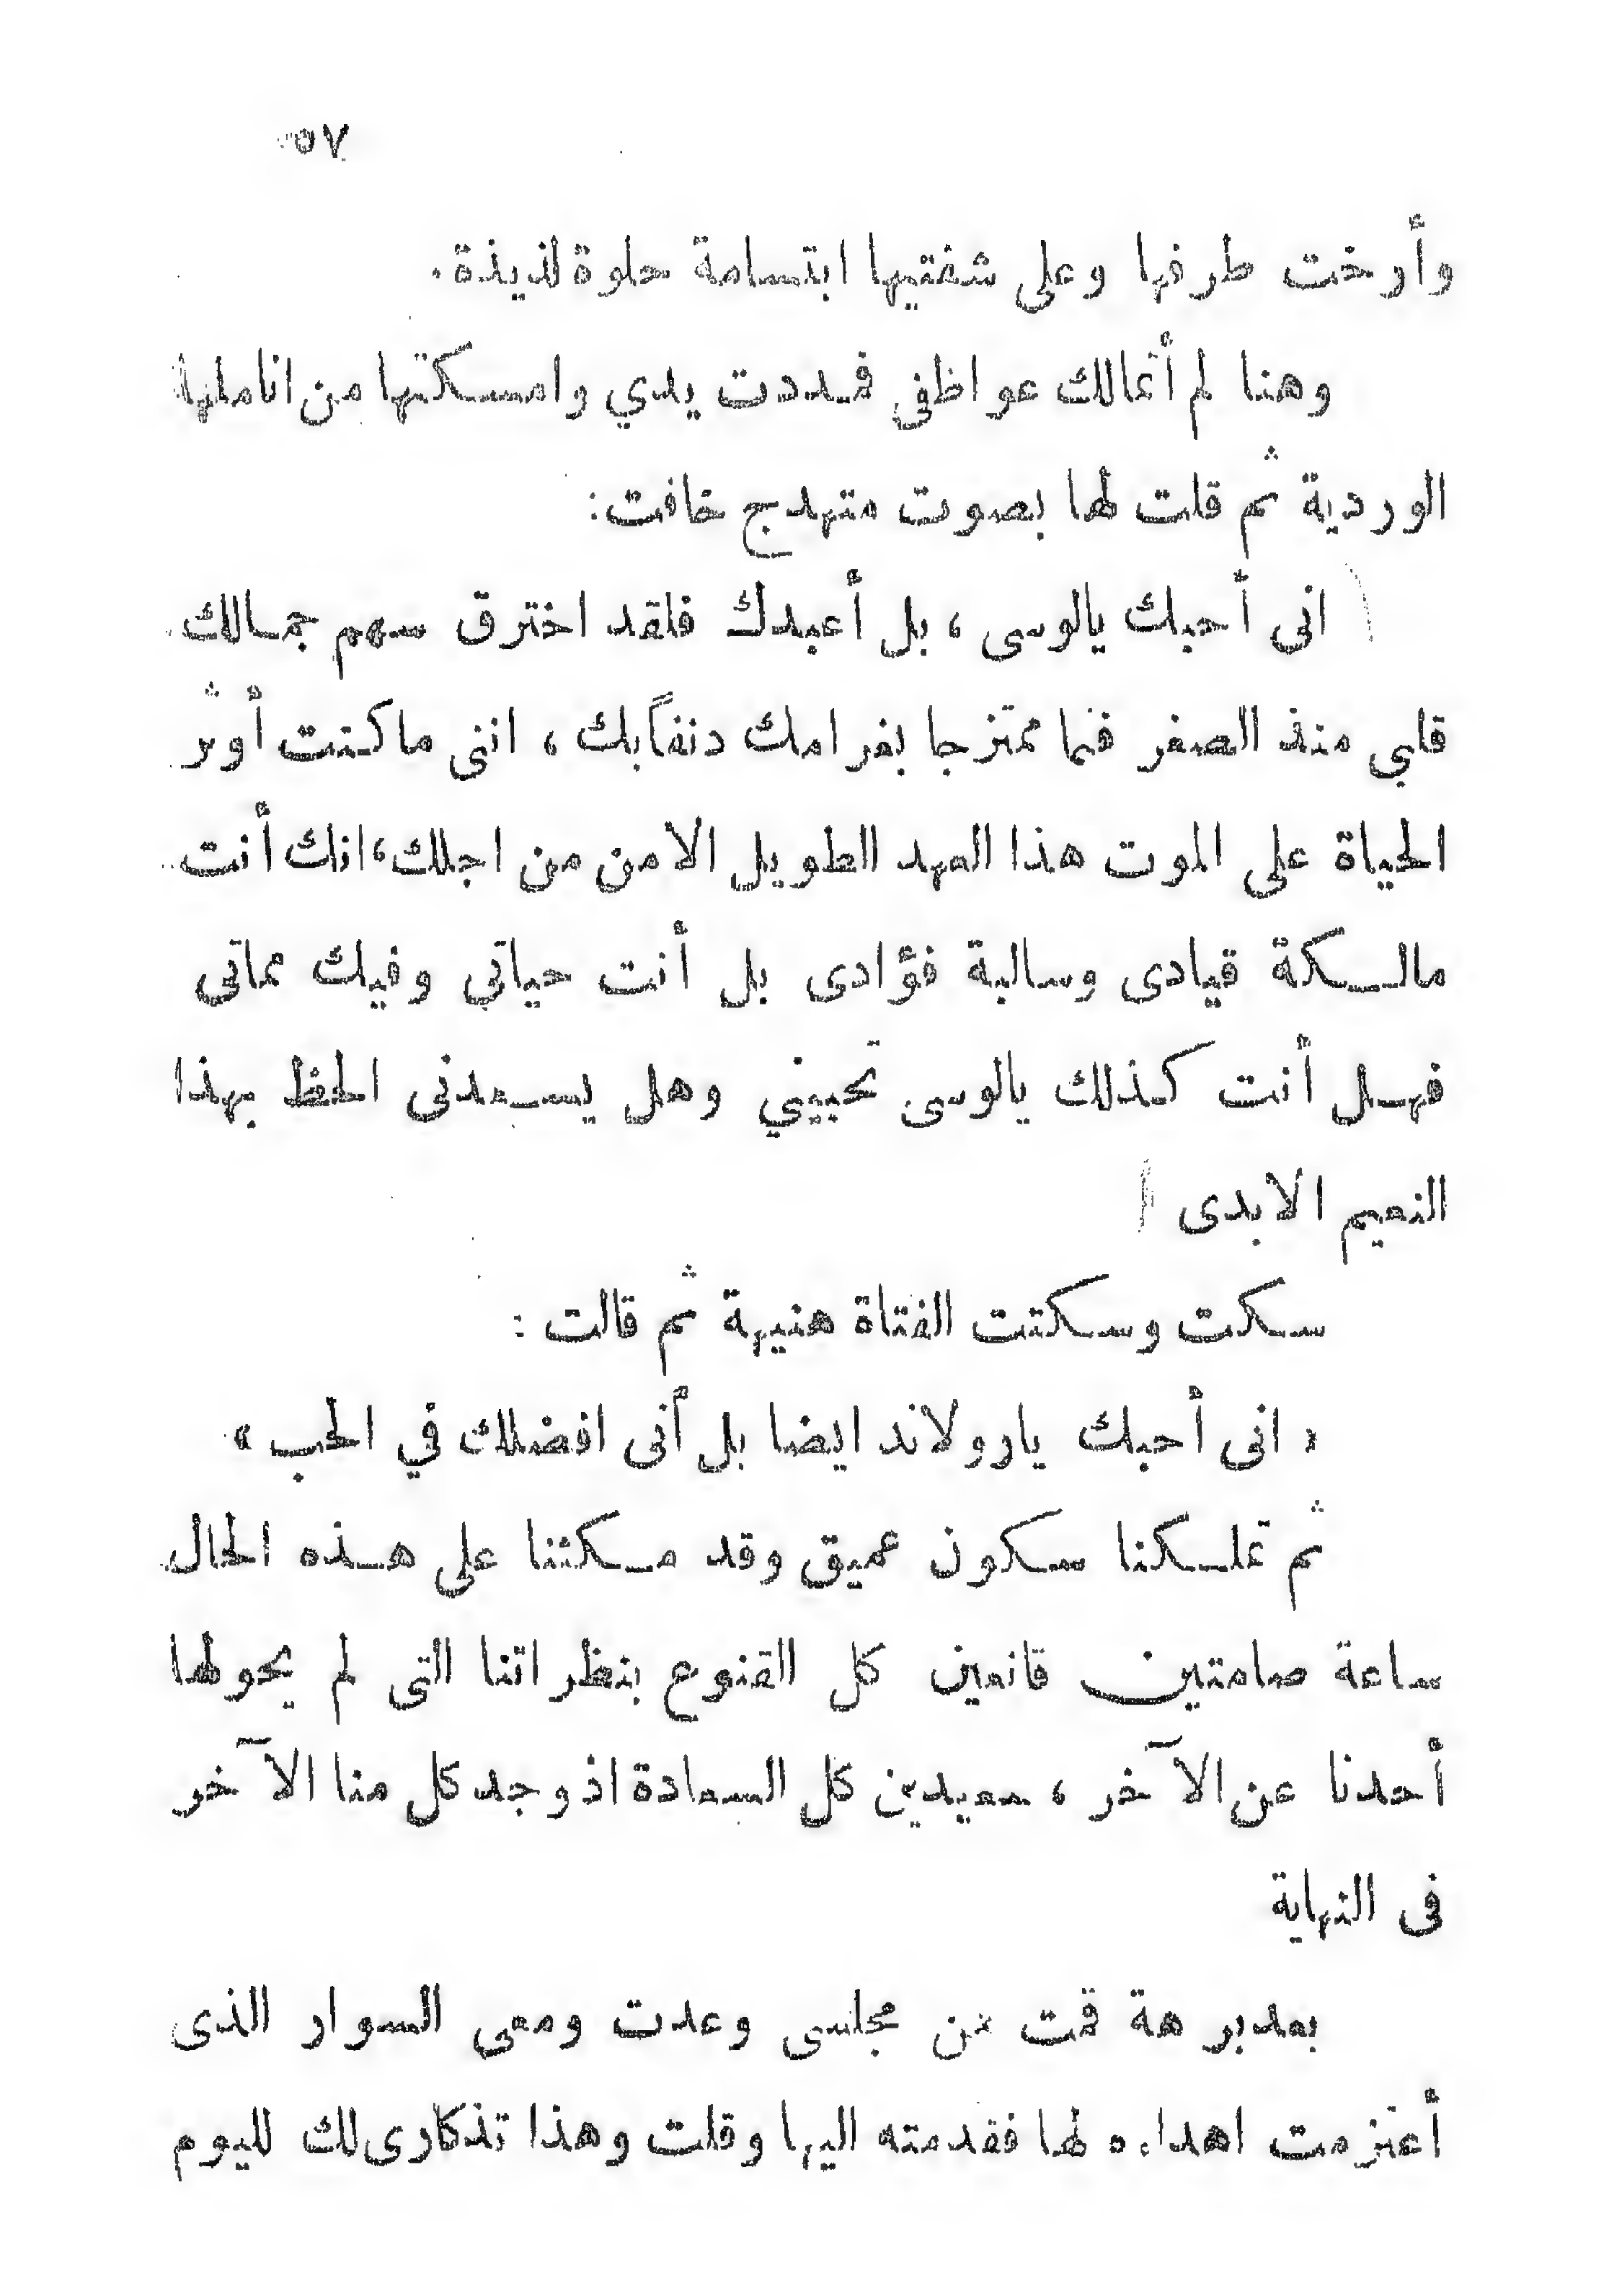 ٥٧
وأرخت طرفها وعلى شفتيها ابتسامة حلوة لذيذة.
وهنا لم أتمالك عواظفى فمددت يدي وامسكتها من اناملها
الوردية ثم قلت لها بصوت متهدج خافت:
انى أحبك يالوسى، بل أعبدك فلقد اخترق سهم جمالك
قلبي منذ الصغر فنما ممتزجا بغرامك دنفاً بك، اننى ماكنت أوثر
الحياة على الموت هذا العهد الطويل الا من من اجلك، انك أنت
مالكة قيادى وسالبة فؤادى بل أنت حياتي وفيك مماتى
فهل أنت كذلك يالوسى تحبيني وهل يسعدنى الحظ بهذا
النعيم الابدى
سكت وسكتت الفتاة هنيهة ثم قالت :
« انى أحبك يارولاند ايضا بل أنى افضلك في الحب »
ثم تملكنا سكون عميق وقد مكثنا على هذه الحال
ساعة صامتين قانعين كل القنوع بنظراتنا التى لم يحولها
أحدنا عن الآخر، سعيدين كل السعادة اذ وجد كل منا الآخر
فى النهاية
بعد برهة قمت من مجلسى وعدت ومعى السوار الذى
أعتزمت اهداءه لها فقدمته اليها وقلت وهذا تذكارى لك لليوم